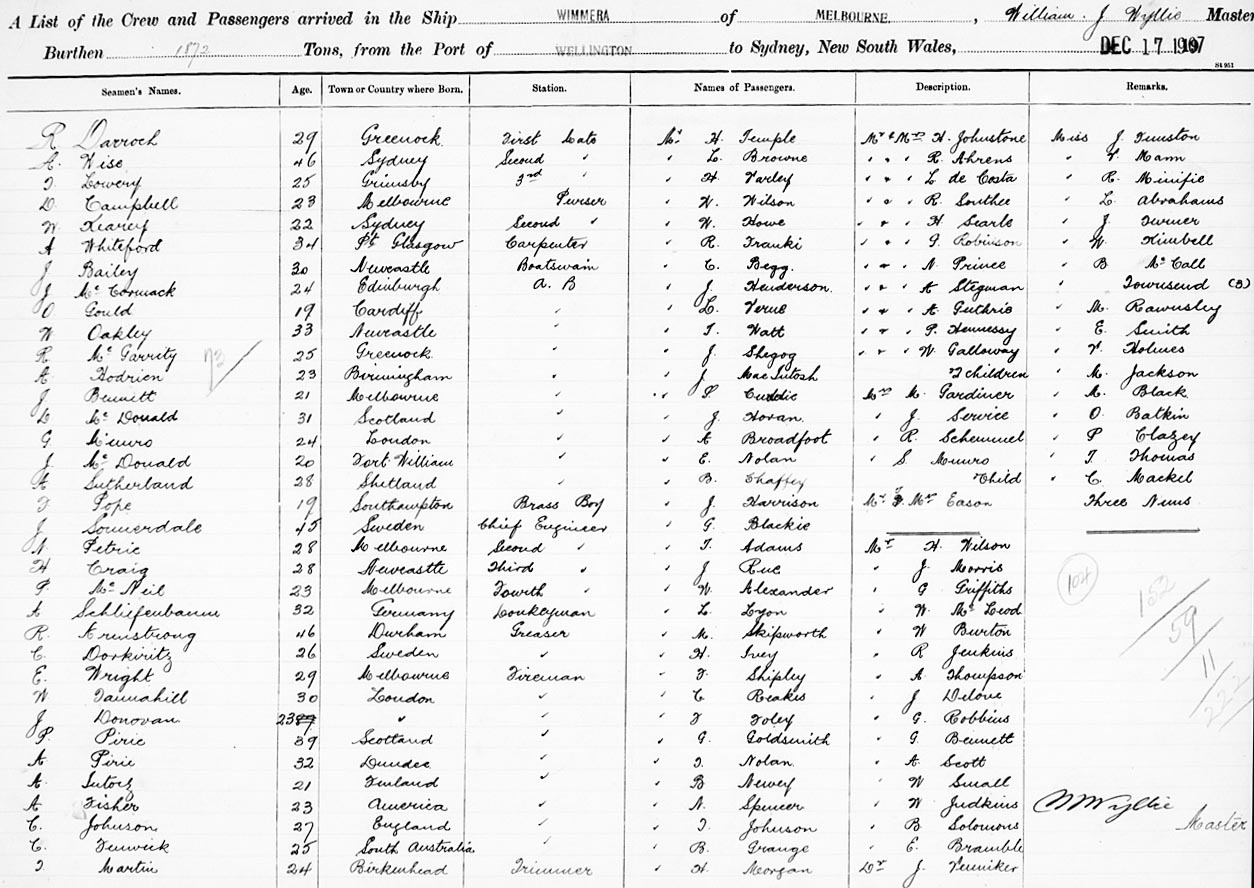 A List of the Crew and Passengers arrived in the Ship WIMMERA of MELBOURNE, William J Wyllie Master
Burthen 1872 Tons, from the Port of WELLINGTON to Sydney, New South Wales, DEC 17 1907
St 951
Seamen's Names. Age. Town or Country where Born. Station. Names of Passengers. Description. Remarks.
R Darroch 29 Greenock First Mate Mr H. Temple Mr & Mrs H. Johnstone Miss J.
A. Wise 46 Sydney Second " " L. Browne " " " R. Ahrens " Mann
J Lowery 25 Grimsby 3rd " " H Varley " " " L de Costa " R. Minifie
D. Campbell 23 Melbourne Purser " W. Wilson " " " R. Southee " L. Abrahams
W. Kearey 22 Sydney Second " " W. Howe " " " H Searle " J. Turner
A Whiteford 34 Pt. Glasgow Carpenter " R. Franki " " " G. Robinson " W. Kimbell
J Bailey 30 Newcastle Boatswain " C. Begg. " " " N Prince " B McCall
J McCormack 24 Edinburgh A. B " J. Henderson " " " A Stegman " Townsend (B)
O Gould 19 Cardiff " " L. Verne " " " A Guthrie " M. Rawnsley
W Oakley 33 Newcastle " " T. Watt " " " P. Hennessy " E. Smith
R McGarrity 25 Greenock " " J. Shegog " " " W. Galloway " V. Holmes
A Hodrien 23 Birmingham " " J. MacIntosh 2 children " M. Jackson
J Bennett 21 Melbourne " " P. Cuddie Mrs M. Gardiner " M. Black
D McDonald 31 Scotland " " J. Horan " J. Service " O. Batkin
G Munro 24 London " " A Broadfoot " R. Schemmel " P Clazey
J. McDonald 20 Fort William " " E. Nolan " S. Munro " T. Thomas
A Sutherland 28 Shetland " " B. Chaffey Child " C. Mackel
F Pope 19 Southampton Brass Boy " J. Harrison Mr & Mrs Eason Three Nuns
J. Sonnerdale 45 Sweden Chief Engineer " G. Blackie
N. Petrie 28 Melbourne Second " " T. Adams Mr H. Wilson
H Craig 28 Newcastle Third " " J Rue " J. Morris
P. McNeil 23 Melbourne Fourth " " W. Alexander " G Griffiths 104
A Schliefenbaum 32 Germany Donkeyman " L. Lyon " W. McLeod 152
R. Armstrong 46 Durham Greaser " M. Skipworth " W Burton 59
C. Dorkiritz 26 Sweden " " H. Ivey " R Jenkins
E. Wright 29 Melbourne Fireman " F. Shipley " A. Thompson 11
W Tannahill 30 London " " C Reakes " J Delove
J. Donovan 23 " " " F Foley " G. Robbins 222
P. Pirie 39 Scotland " " G. Goldsmith " G. Bennett
A Pirie 32 Dundee " " J. Nolan " A. Scott
A. 21 Finland " " B Newey " W Small
A Fisher 23 America " " N. Spencer " W Judkins WWyllie
C. Johnson 27 England " " J. Johnson " B. Solomons Master
C. Fenwick 25 South Australia " " B. Grange " E. Bramble
J. Martin 24 Birkenhead Trimmer " H. Morgan Dr J.